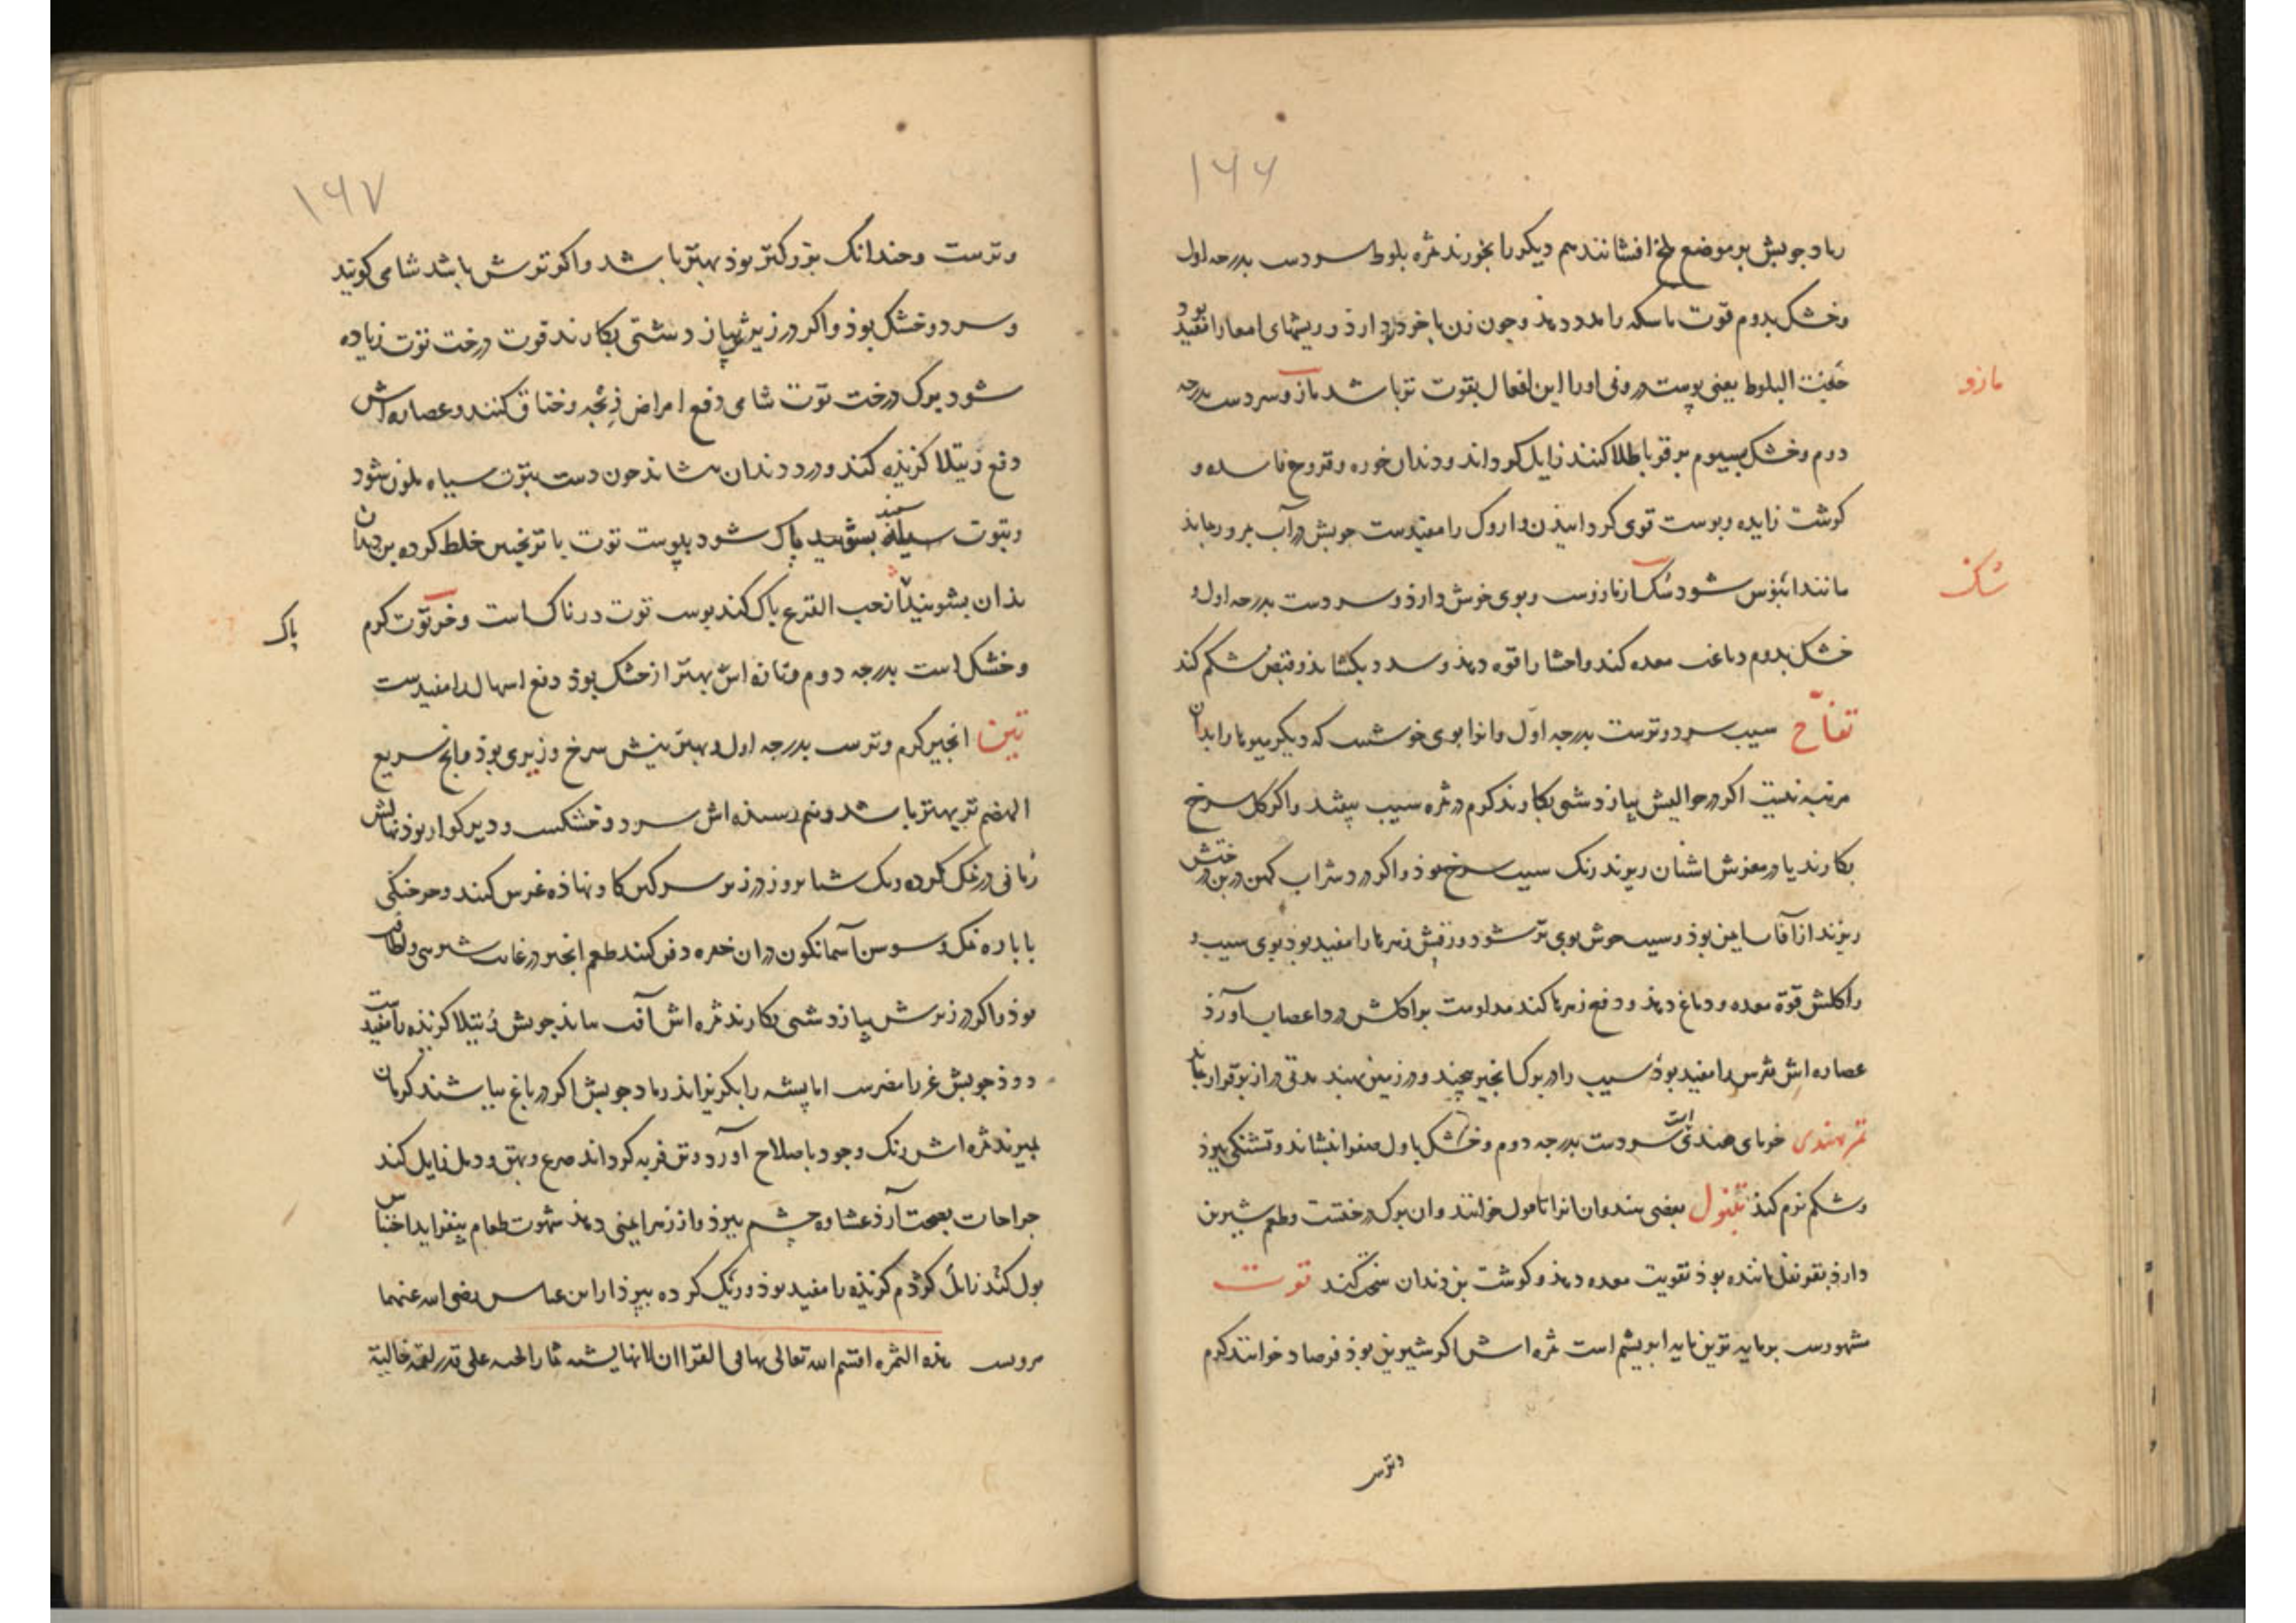 ۱۶۶
رماد چوبش بر موضع ملخ افشانند هم دیکر را بخورند ثمره بلوط سردست بدرجه اول
وخشک بدوم قوت ماسکه را مدد دهذ وچون زن با خود دارذ وریشهای امعا را مفید بود
جفت البلوط یعنی پوست درونی اورا این افعال بقوت تر باشد مازو سردست بدرجه
مازو
دوم وخشک بسیوم بر قوبا طلا کنند زایل کرداند ودندان خوره وقروح فاسده و
کوشت زایده وپوست قوی کردانیذن داروک را مفیدست چوبش در آب
مانند ابنوس شود سک از مازوست وبوی خوش دارذ وسردست بدرجه اول و
سک
خشک بدوم دباغت معده کند واحشا را قوه دهذ وسدد بکشایذ وقبض شکم کند
تفاح سیب سرد وترست بدرجه اول وانرا بوی خوشست که دیکر میوها را بدان
مرتبه نیست اکر در حوالیش پیاز دشتی بکارند کرم در ثمره سیب نیفتد واکر کل سرخ
بکارند یا در مغزش اشنان ریزند رنک سیب سرخ بوذ واکر دردی شراب کهن در بن درختش
ریزند از آفات ایمن بوذ وسیب خوش بوی تر شود ورقش زهرها را مفید بود بوی سیب و
واکلش قوة معده ودماغ دهذ ودفع زهرها کند مداومت بر اکلش درد اعصاب آورذ
عصاره اش نقرس را مفید بوذ سیب را در برک انجیر پیچند ودر زمین نهند مدتی دراز برقرار بماند
تمر هندی خرمای هندی است سردست بدرجه دوم وخشک باول صفرا بنشاند وتشنکی ببرذ
وشکم نرم کند تنبول بعضی هندوان انرا تامول خوانند وان برک درختیست وطعم شیرین
دارذ بقرنفل ماننده بوذ تقویت معده دهذ وکوشت بن دندان سخت کند توت
مشهورست برمایه ترین مایه ابریشم است ثمره اش اکر شیرین بوذ فرصاد خوانند کرم
وترست
۱۶۷
وترست وچندانک بزرکتر بوذ بهتر باشد واکر ترش باشد شامی کویند
وسرد وخشک بوذ واکر در زیرش پیاز دشتی بکارند قوت درخت توت زیاده
شود برک درخت توت شامی دفع امراض ذبحه وخناق کنند وعصاره اش
دفع رتیلا کزیذه کند ودرد دندان بنشاند چون دست بتوت سیاه ملون شود
وبتوت سفید بشویند پاک شود پوست توت با ترنجبین خلط کرده بن دندان
بذان بشویند از حب القرع پاک کند پوست توت در ناک است وخر توت کرم
پاک
وخشک است بدرجه دوم وتازه اش بهتر از خشک بوذ دفع اسهال را مفیدست
تین انجیر کرم وترست بدرجه اول وبهترینش سرخ وزیری بوذ وبالغ سریع
الهضم تر بهتر باشد ونیم رسیذه اش سرد وخشکست ودیر کوار بوذ نهالش
زمانی در نمک کرده ویک شبانروز در زیر سرکین کاو نهاذه غرس کنند وهر خنکی
با پاره نمک وسوسن آسمانکون دران حفره دفن کنند طعم انجیر در غایت شیرینی ولطافت
بوذ واکر در زیرش پیاز دشتی بکارند ثمره اش از آفت بماند چوبش رتیلا کزیذه را مفیدست
دوذ چوبش غر را مضرست اما پشه را بکریزاند رماد چوبش اکر در باغ بپاشند کرمان
بمیرند ثمره اش رنک وجود باصلاح آورد وتن فربه کرداند صرع وبهق ودمل زایل کند
جراحات بصحت آرذ غشاوه چشم ببرذ واز زهر ایمنی دهذ شهوت طعام بیفزاید احتباس
بول کند زایل کژدم کزیذه را مفید بوذ وریک کرده ببرذ از ابن عباس رضی الله عنهما
مرویست هذه الثمره اقسم الله تعالی بها فی القران لانها یشبه ثمار الجنه علی قدر لقمة خالیة